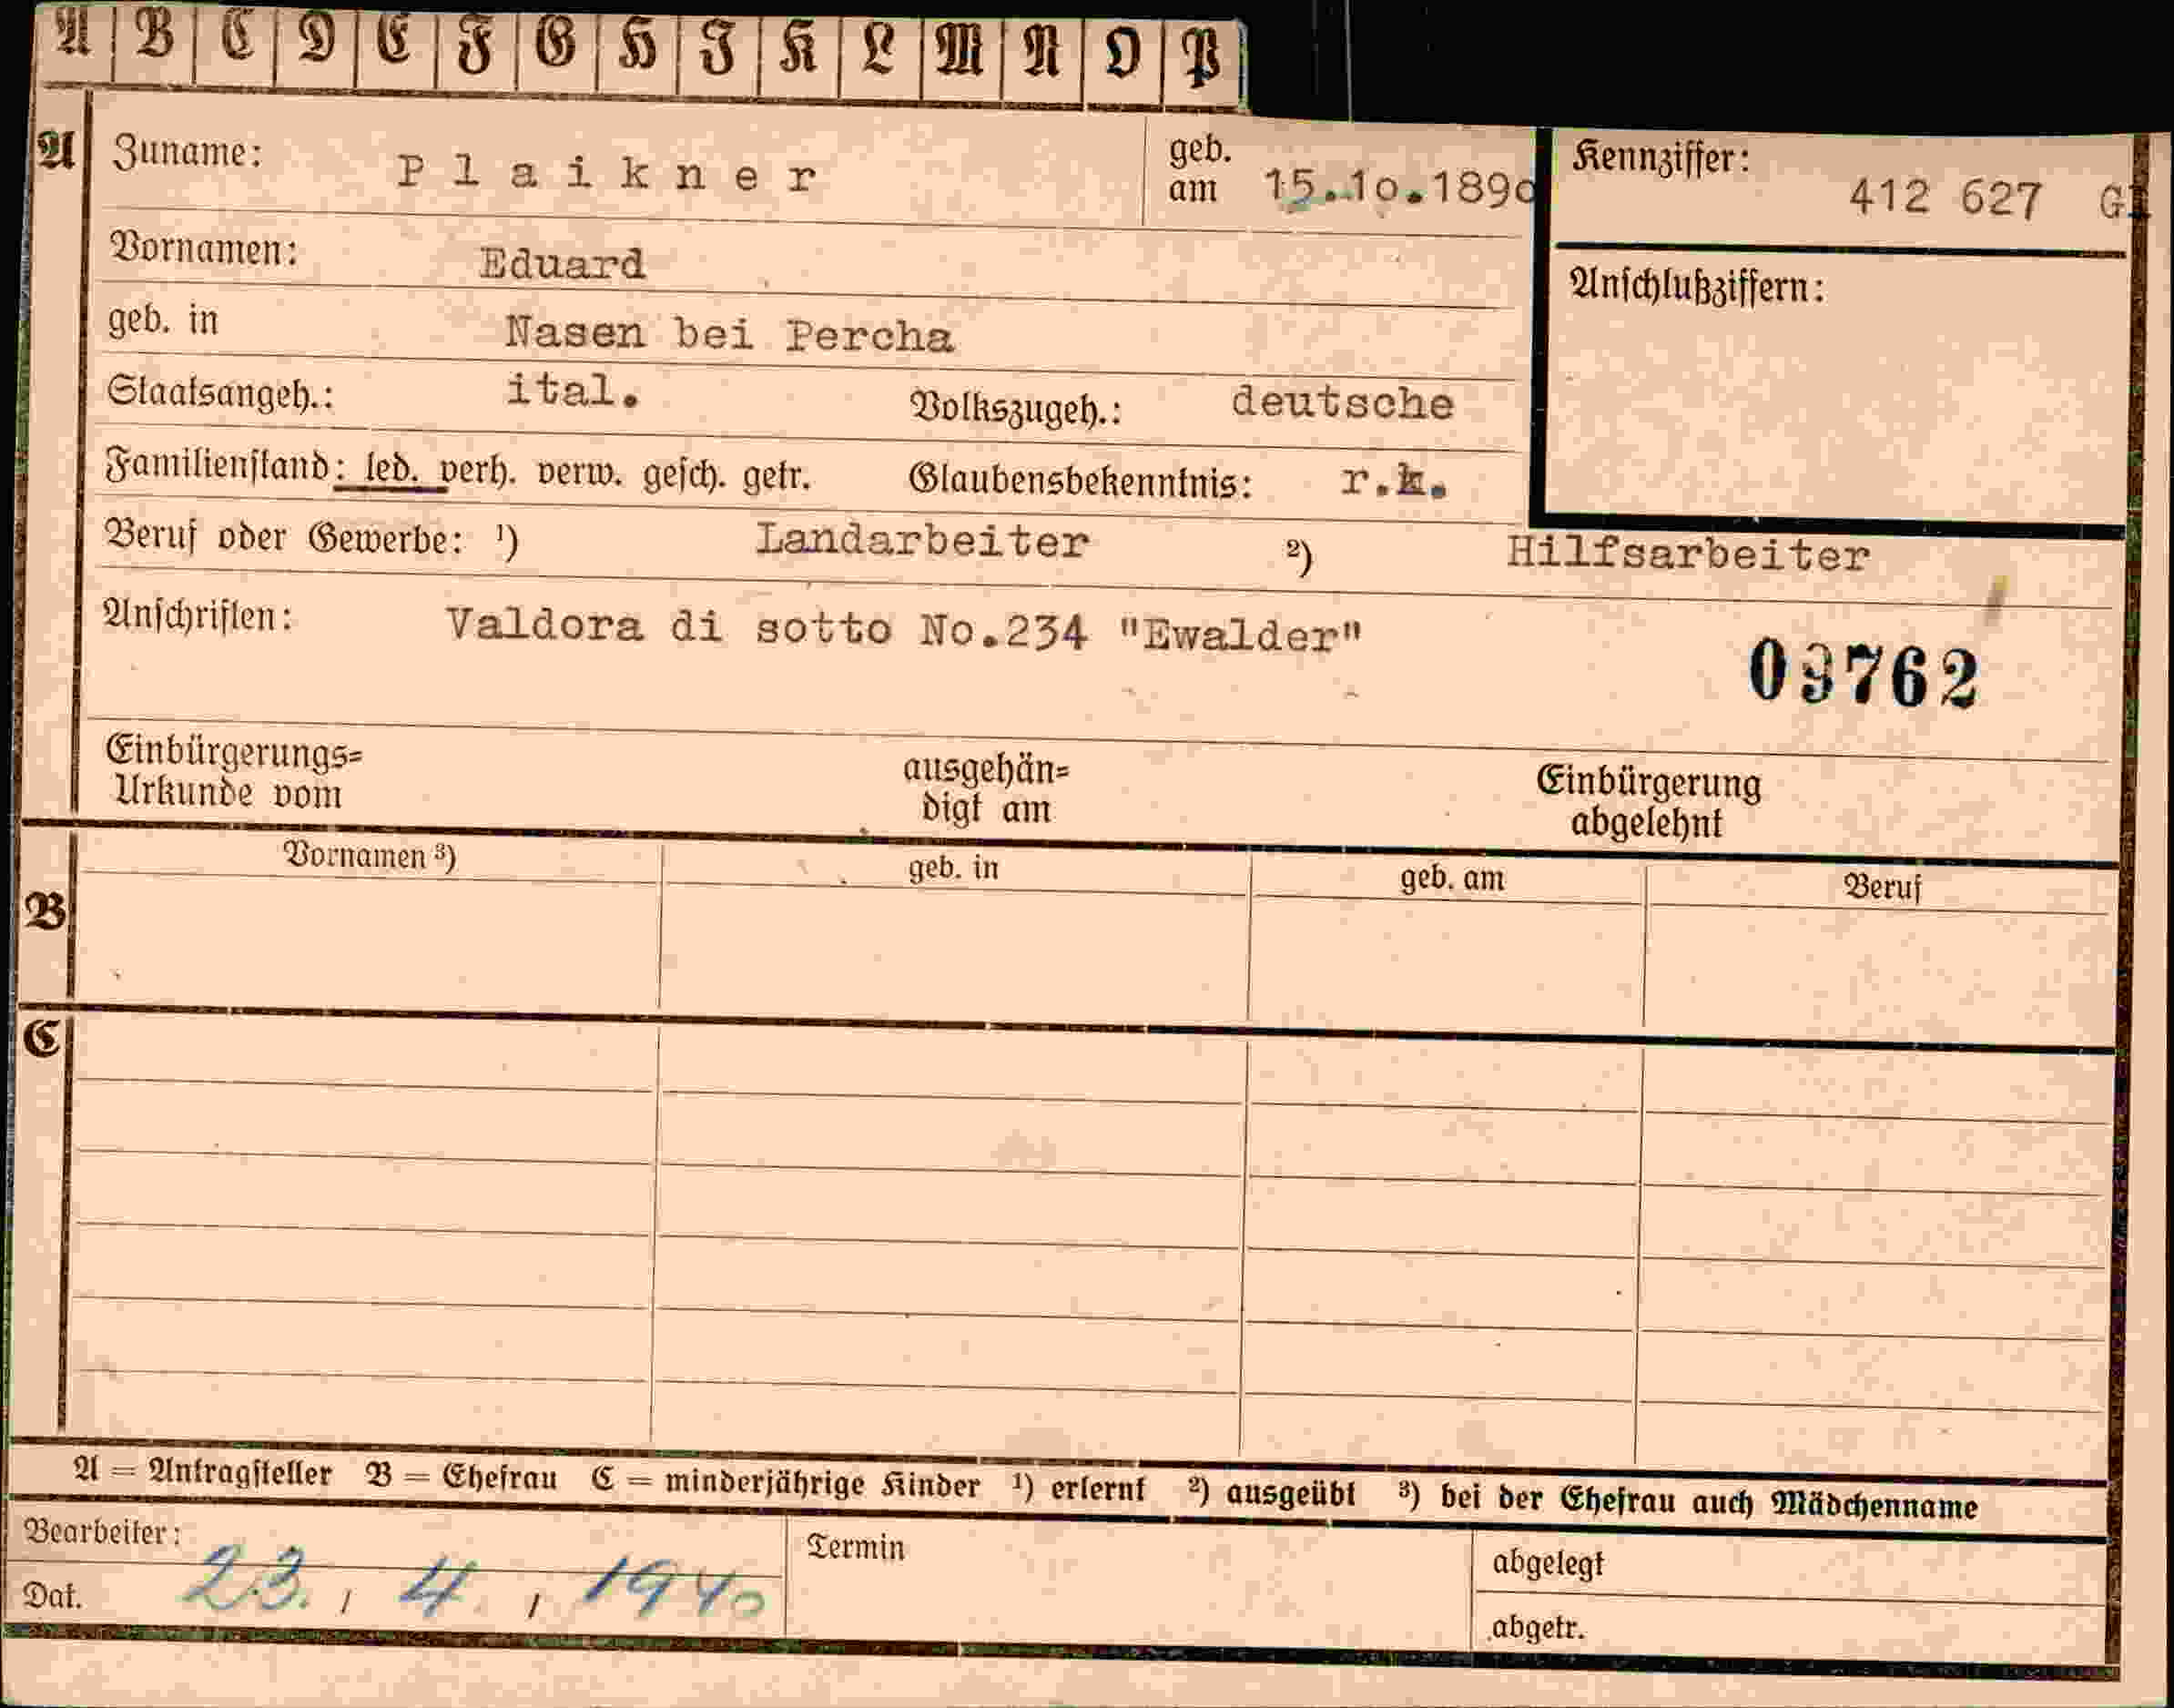 A B C D E F G H I K L M N O P
A Zuname: Plaikner geb. am 15.10.1890 Kennziffer: 412 627
Vornamen: Eduard
Anschlußziffern:
geb. in Nasen bei Percha
Staatsangeh.: ital. Volkszugeh.: deutsche
Familienstand: led. verh. verw. gesch. getr. Glaubensbekenntnis: r.k.
Beruf oder Gewerbe: ¹) Landarbeiter ²) Hilfsarbeiter
Anschriften: Valdora di sotto No.234 "Ewalder"
09762
Einbürgerungs=
Urkunde vom
ausgehän=
digt am
Einbürgerung
abgelehnt
B Vornamen ³) geb. in geb. am Beruf
C
A = Antragsteller B = Ehefrau C = minderjährige Kinder ¹) erlernt ²) ausgeübt ³) bei der Ehefrau auch Mädchenname
Bearbeiter:
Termin
abgelegt
Dat. 23. / 4. / 1940
abgetr.